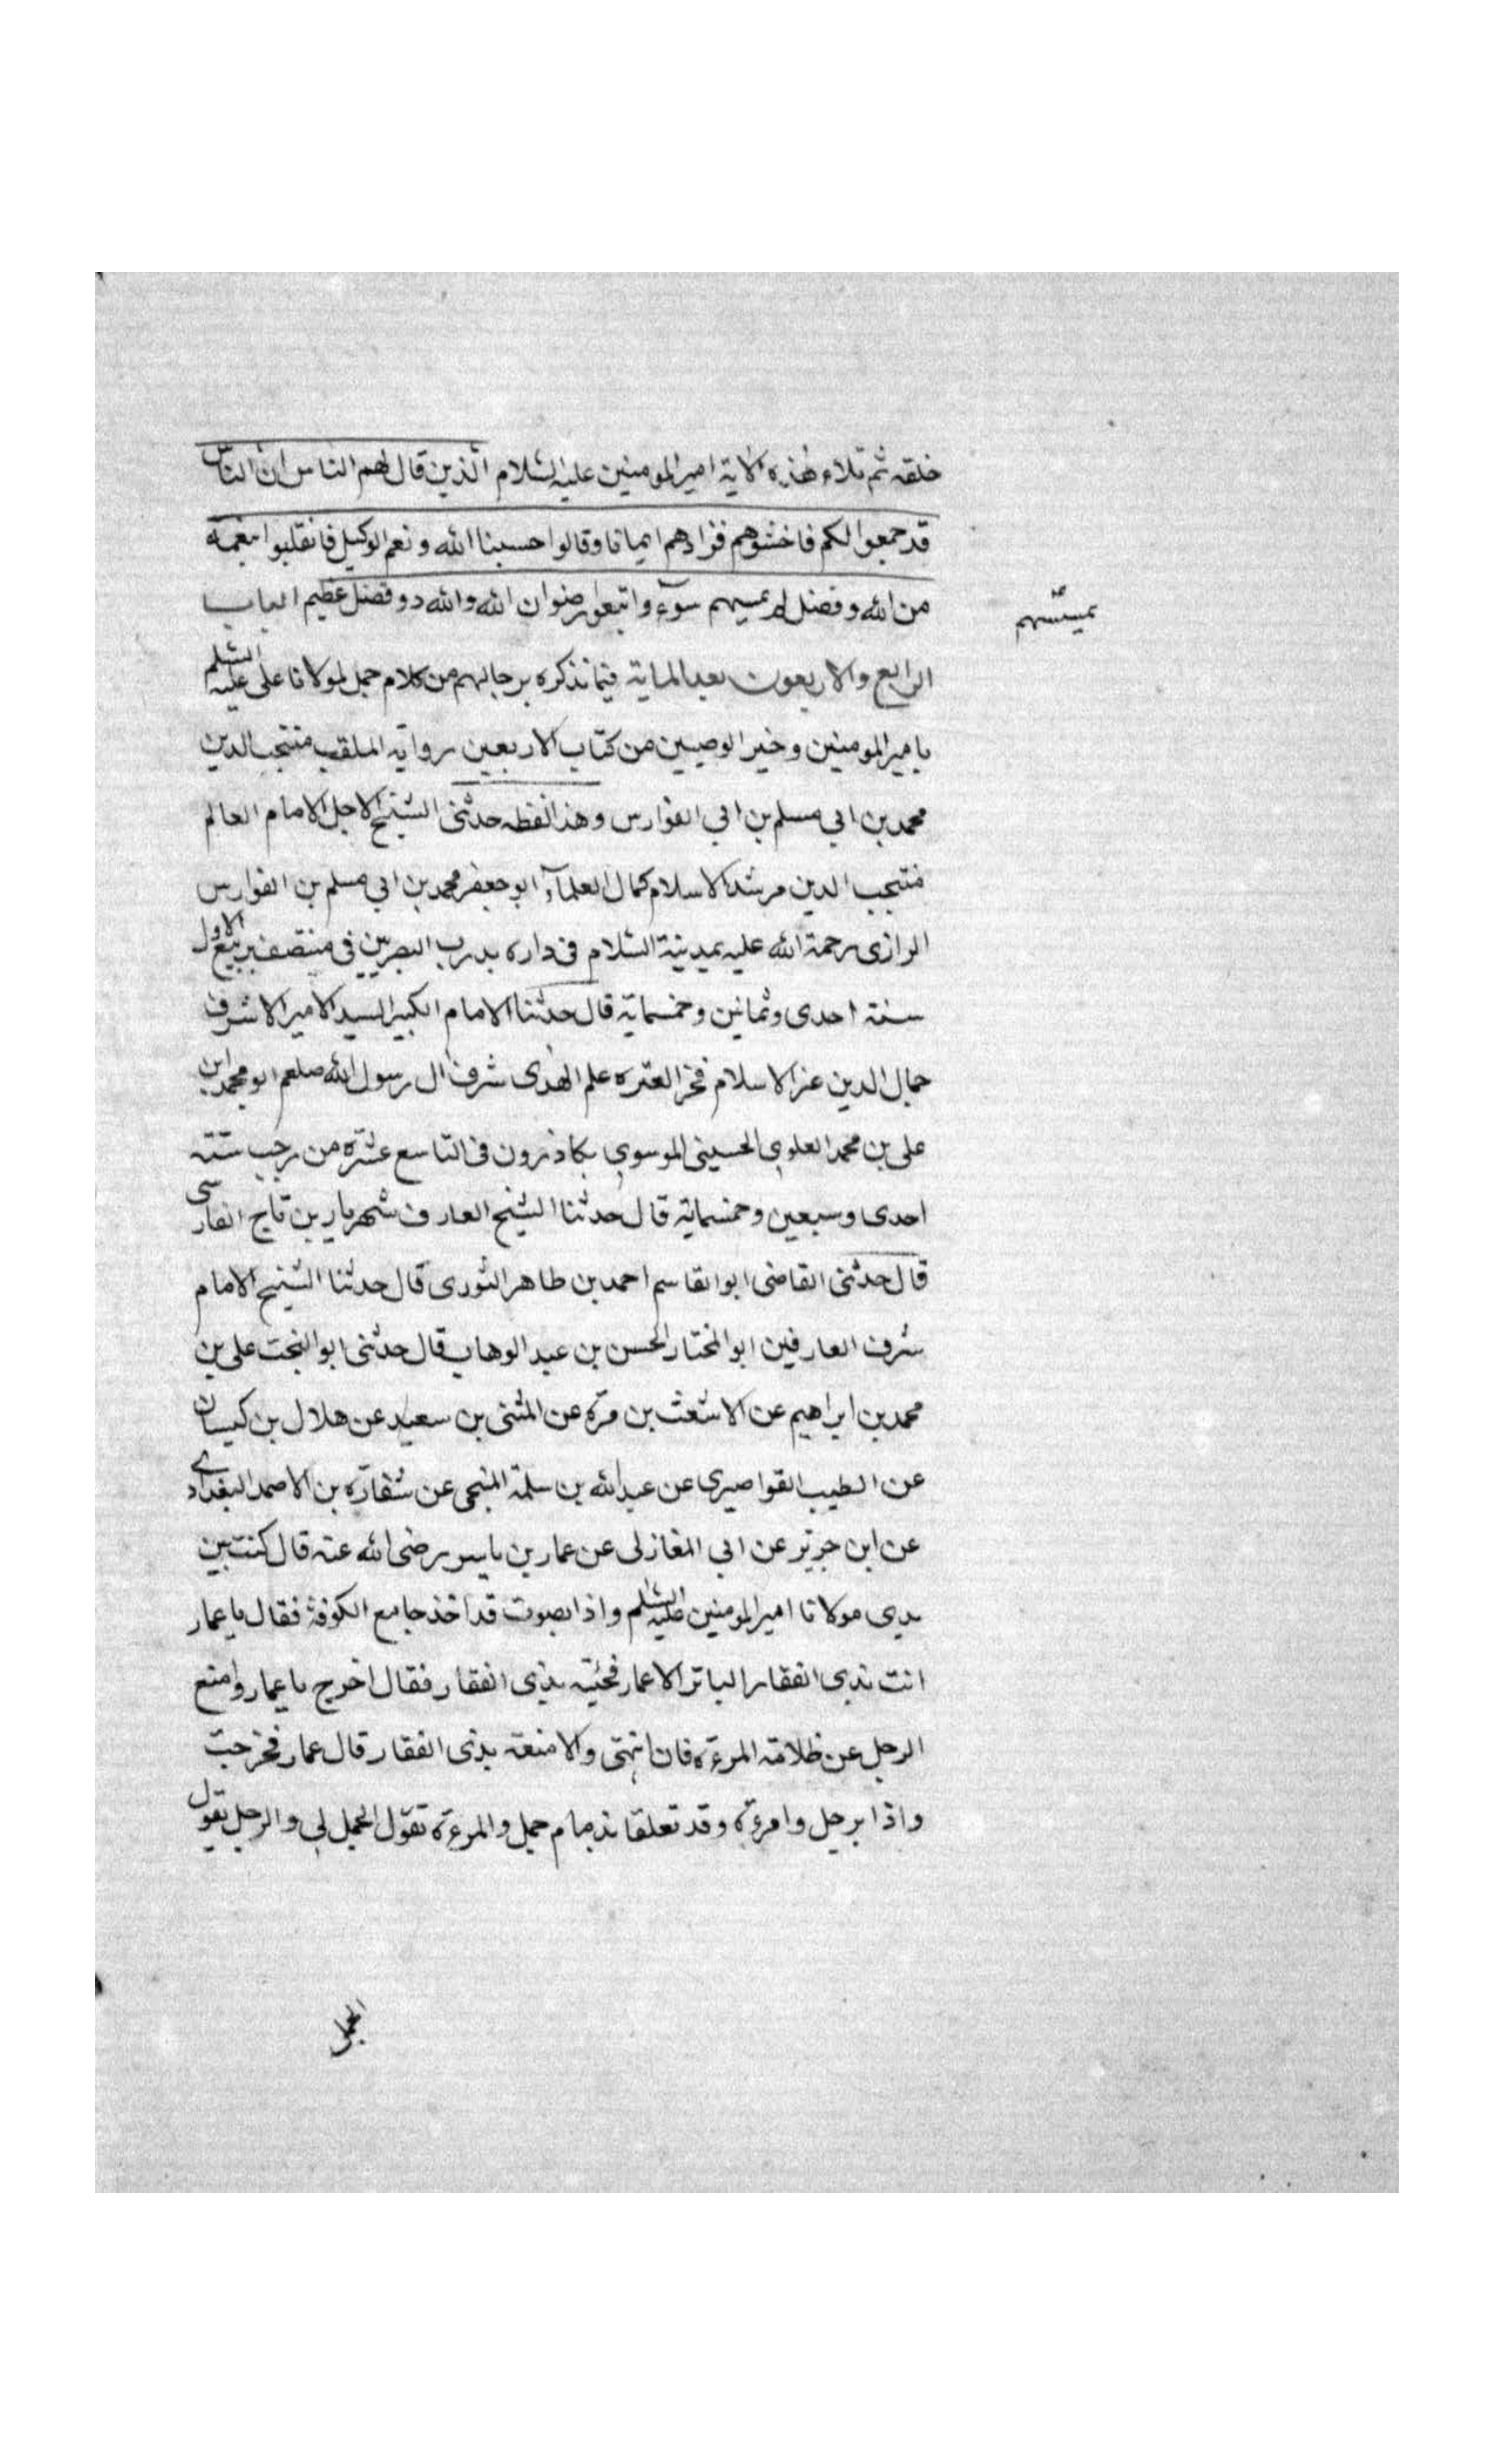 خلقه ثم تلاء هذه الاية اميرالمومنين عليه السلام الذين قال لهم الناس ان الناس
قد جمعوا لكم فاخشوهم فزادهم ايمانا وقالوا حسبنا الله ونعم الوكيل فانقلبوا بنعمة
من الله وفضل لم يمسهم سوء واتبعوا رضوان الله والله ذو فضل عظيم الباب
يمسسهم
الرابع والاربعون بعد الماية فيما نذكره برجالهم من كلام جمل لمولانا على عليه السلم
باميرالمومنين وخير الوصيين من كتاب الاربعين رواية الملقب منتجب الدين
محمد بن ابي مسلم بن ابي الفوارس وهذا لفظه حدثنى الشيخ الاجل الامام العالم
منتجب الدين مرشد الاسلام كمال العلماء ابو جعفر محمد بن ابي مسلم بن الفوارس
الرازى رحمة الله عليه بمدينة السلام فى داره بدرب البصريين فى منتصف ربيع الاول
سنة احدى وثمانين وخمسماية قال حدثنا الامام الكبير السيد الامير الاشرف
جمال الدين عز الاسلام فخر العتره علم الهدى شرف ال رسول الله صلعم ابو محمد ابن
على بن محمد العلوى الحسينى الموسوى بكاذرون فى التاسع عشره من رجب سنة
احدى وسبعين وخمسماية قال حدثنا الشيخ العارف شهريار بن تاج الفارسى
قال حدثنى القاضى ابو القاسم احمد بن طاهر الثورى قال حدثنا الشيخ الامام
شرف العارفين ابو المختار الحسن بن عبد الوهاب قال حدثنى ابو النجت على بن
محمد بن ابراهيم عن الاشعث بن مرة عن المثنى بن سعيد عن هلال بن كيسان
عن الطيب القواصيرى عن عبد الله بن سلمة المنجى عن شقارة بن الاصمد البغدادى
عن ابن جرير عن ابي المغازلى عن عمار بن ياسر رضى الله عنه قال كنت بين
يدى مولانا اميرالمومنين عليه السلم واذا بصوت قد اخذ جامع الكوفة فقال يا عمار
ائت بذى الفقار الباتر الاعمار فجئته بذى الفقار فقال اخرج يا عمار وامنع
الرجل عن ظلامة المرءة فان انتهى والا منعته بذى الفقار قال عمار فخرجت
واذا برجل وامرءة وقد تعلقا بزمام جمل والمرءة تقول الجمل لى والرجل يقول
الجمل